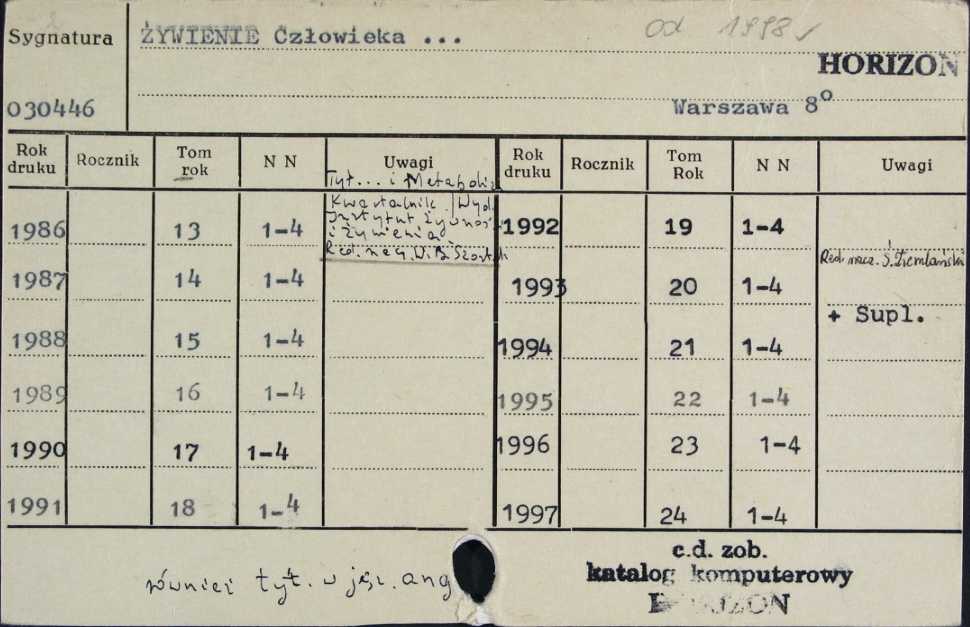 Sygnatura ŻYWIENIE Człowieka ... od 1998
HORIZON
030446 Warszawa 8°
Rok druku Rocznik Tom rok N N Uwagi Rok druku Rocznik Tom Rok N N Uwagi
Tyt... i Metaboliz
Kwartalnik. Wyd.
Instytut Żywnoś
i Żywienia
Red. nacz. W.B. Szost
1986 13 1-4 1992 19 1-4
Red. nacz. Ś. Ziemlański
1987 14 1-4 1993 20 1-4 + Supl.
1988 15 1-4 1994 21 1-4
1989 16 1-4 1995 22 1-4
1990 17 1-4 1996 23 1-4
1991 18 1-4 1997 24 1-4
również tyt. w jęz. ang
c.d. zob.
katalog komputerowy
HORIZON